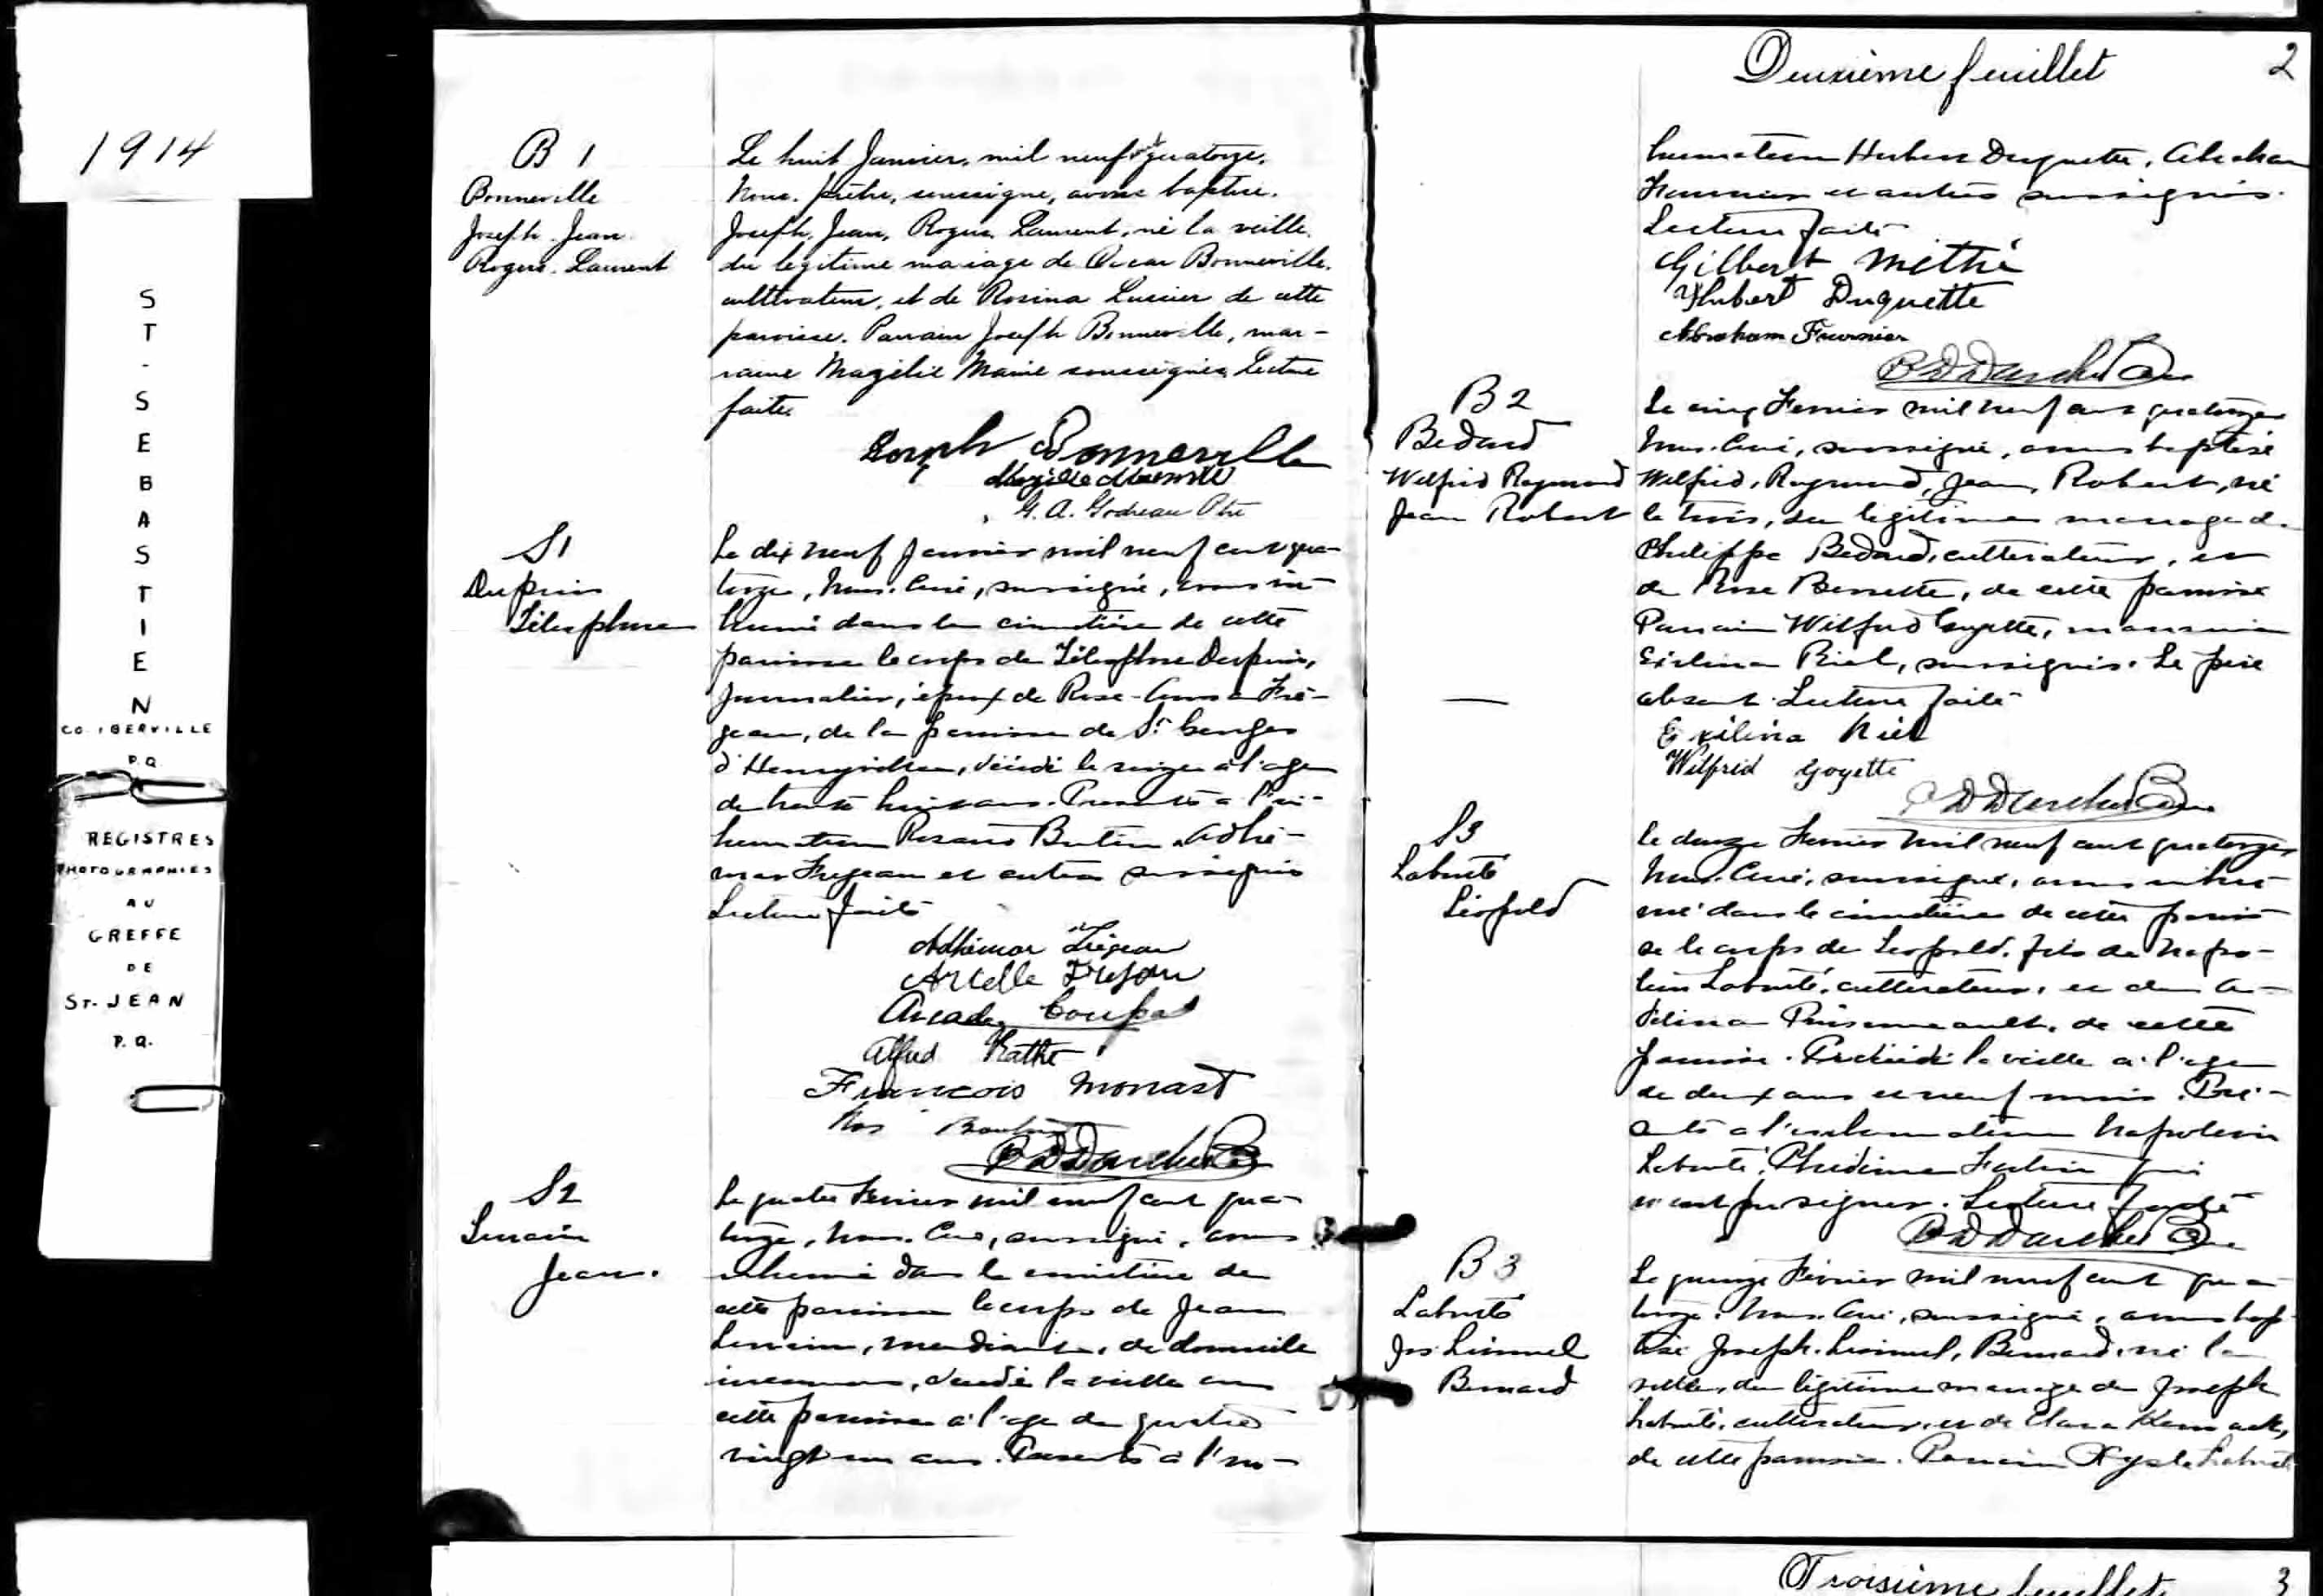 1914
ST-SEBASTIEN
CO. IBERVILLE
P.Q.
REGISTRES
PHOTOGRAPHIES
AU
GREFFE
DE
ST-JEAN
P.Q.
B 1
Bonneville
Joseph. Jean.
Roger. Laurent
Le huit Janvier, mil neuf cent quatorze,
Nous, prêtre, soussigné, avons baptisé.
Joseph, Jean, Roger, Laurent, né la veille,
du légitime mariage de Oscar Bonneville.
cultivateur, et de Rosina Lussier de cette
paroisse. Parrain Joseph Bonneville, mar-
raine Mazélie Mainé soussignés. Lecture
faite.
Joseph Bonneville
G. A. Godreau Ptre
S1
Dupuis
Télesphore
Le dix neuf Janvier mil neuf cent qua-
torze, Nous, Curé, soussigné, avons in-
humé dans le cimetière de cette
paroisse le corps de Télesphore Dupuis,
Journalier, époux de Rose-Anna Fré-
geau, de la paroisse de St. Georges
d'Henryville, décédé le seize à l'age
de trente huit ans. Presents à l'in-
humation Boutin, Adhé-
mar Fregeau et autres soussignés
Lecture faite
Adhémar Frégeau
Fregeau
Coupal
Alfred
Francois Monast
Boutin
S2
Jean.
Le quatre Fevrier mil neuf cent qua-
torze, Nous, Curé, soussigné, avons
inhumé dans le cimetière de
cette paroisse le corps de Jean
mendiant, de domicile
inconnu, décédé la veille en
cette paroisse à l'age de quatre
vingt un ans. Presents à l'in-
Deuxième feuillet 2
humation Hubert Duquette, Abraham
Fournier et autres soussignés.
Lecture faite
Gilbert Methé
Hubert Duquette
Abraham Fournier
B 2
Bedard
Wilfrid Raymond
Jean Robert
Le cinq Fevrier mil neuf cent quatorze
Nous, Curé, soussigné, avons baptisé
Wilfrid, Raymond, Jean, Robert, né
le trois, du légitime mariage de
Philippe Bedard, cultivateur, et
de Rose Bessette, de cette paroisse
Parrain Wilfrid Goyette, marraine
Exilina Riel, soussignés. Le père
absent. Lecture faite
Exilina Riel
Wilfrid Goyette
S3
Labonté
Léopold
Le douze Fevrier mil neuf cent quatorze
Nous, Curé, soussigné, avons inhu-
mé dans le cimetière de cette parois-
se le corps de Leopold, fils de Napo-
léon Labonté, cultivateur, et de A-
delina Poissenault, de cette
paroisse. décédé la veille à l'age
de deux ans et neuf mois. Pré-
sents à l'inhumation Napoléon
Labonté, qui
n'ont pu signer. Lecture faite
B 3
Labonté
Jos. Lionnel
Bernard
Le quinze Février mil neuf cent qua-
torze, Nous, Curé, soussigné, avons bap-
tisé Joseph, Lionnel, Bernard, né la
veille, du légitime mariage de Joseph
Labonté, cultivateur, et de Clara
de cette paroisse. Parrain Labonté
Troisième feuillet 3